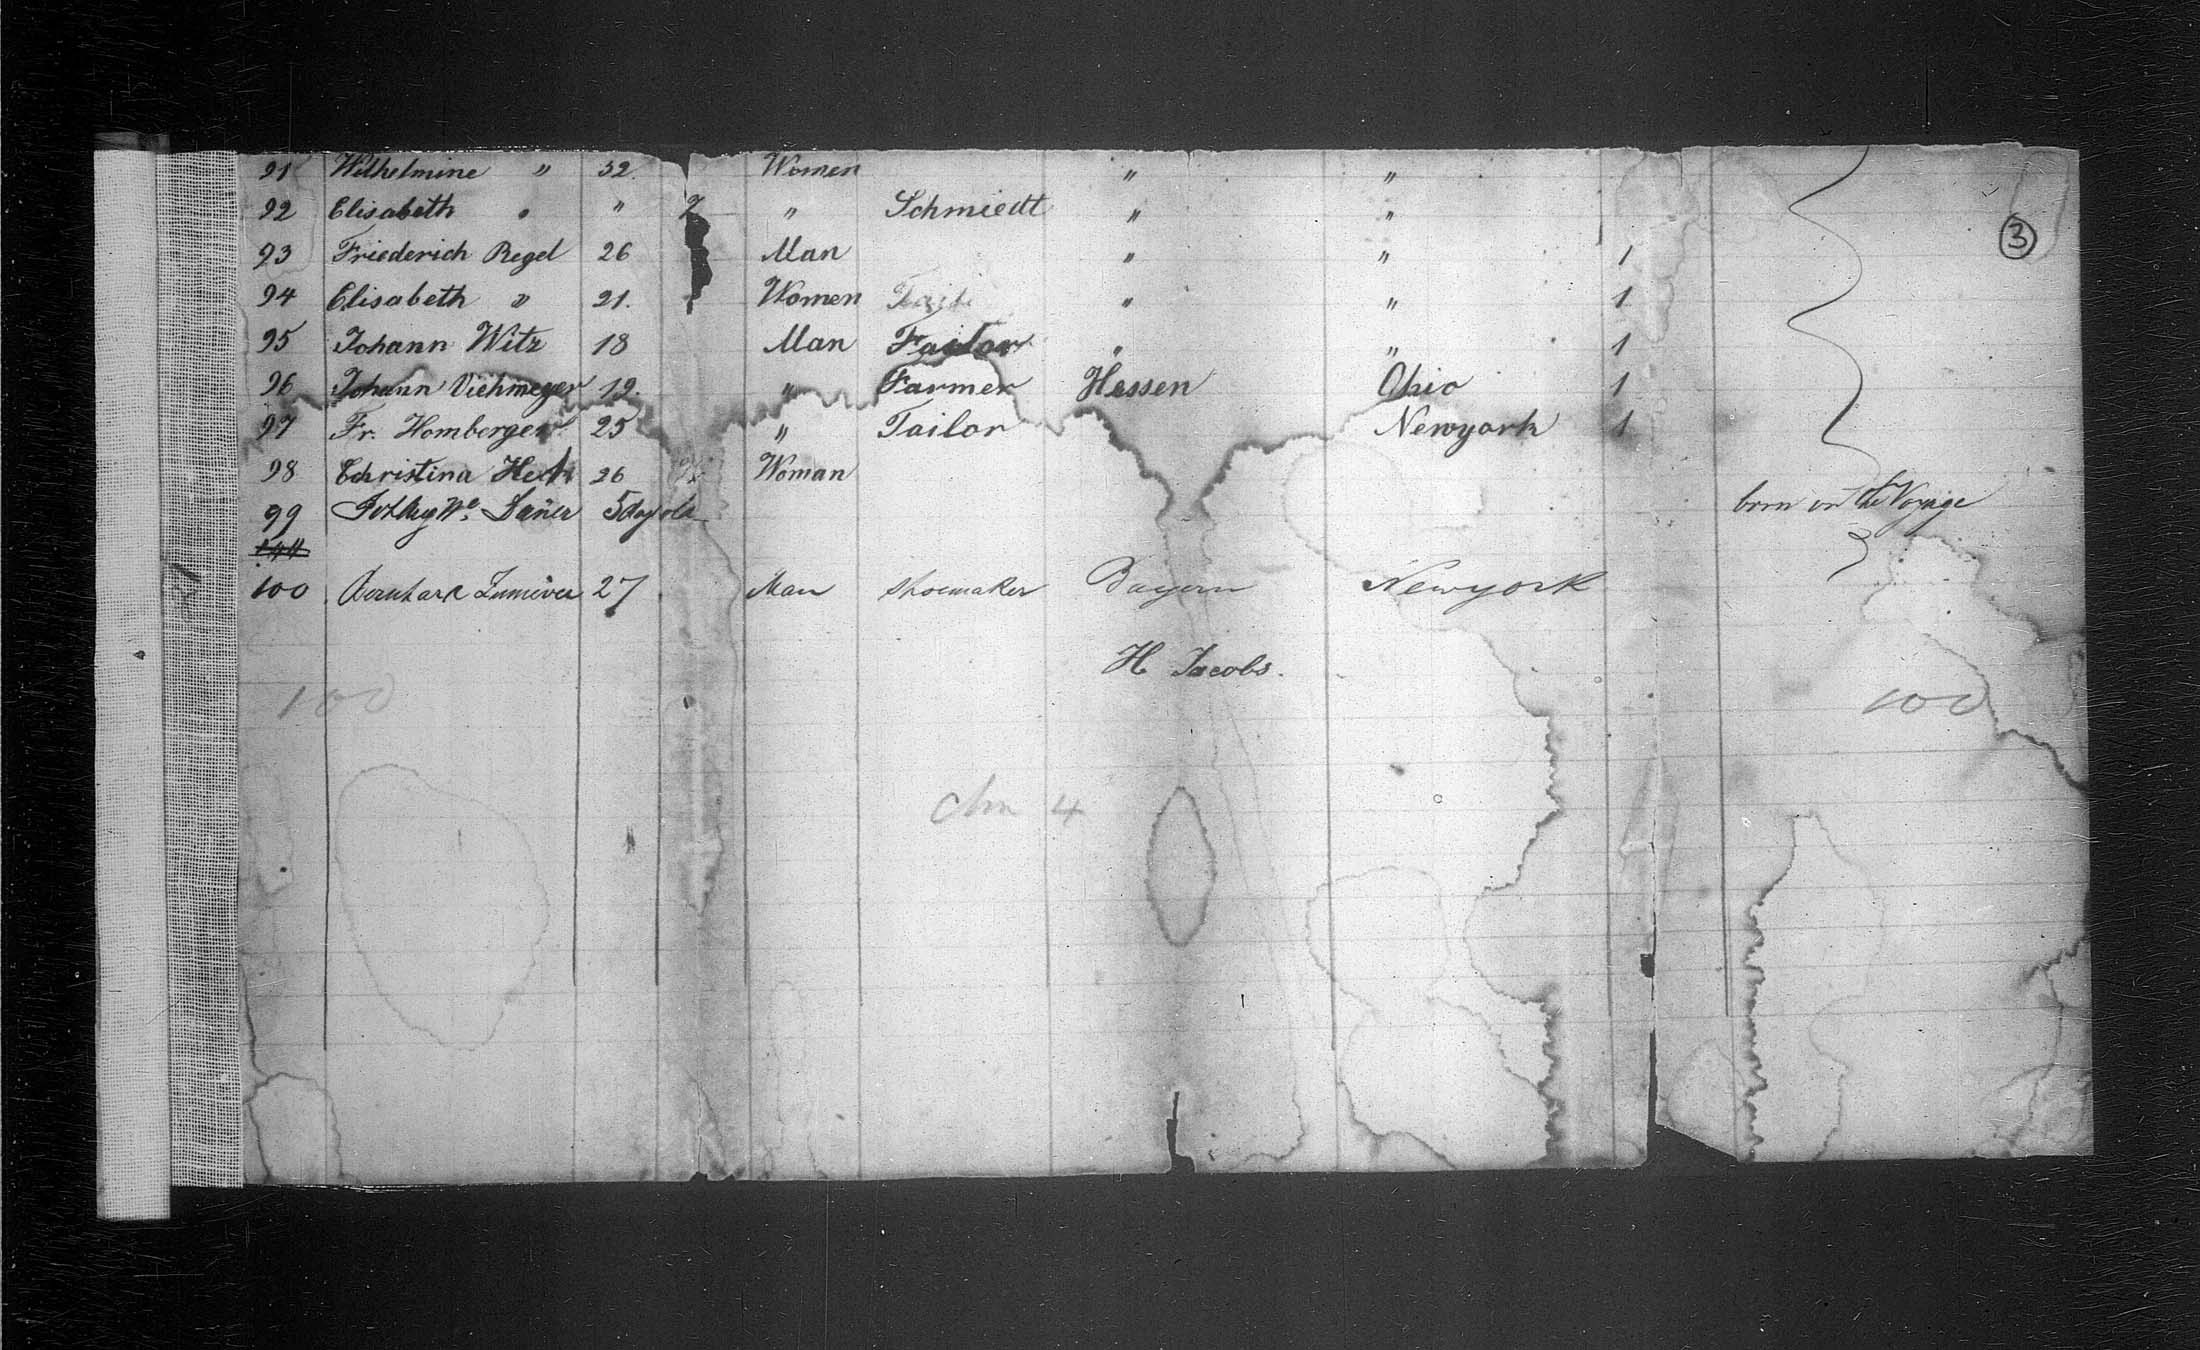 91 Wilhelmine " 32. Women " "
92 Elisabeth " " 2 " Schmiedt " "
93 Friederich Regel 26 Man " " 1
94 Elisabeth " 21. Women " " 1
95 Johann Witz 18 Man Tailor " " 1
96 Johann Viehmeyer 19. " Farmer Hessen Ohio 1
97 Fr. Homberger 25 " Tailor Newyork 1
98 Christina 26 Woman
99 5 day old born on the Voyage
100 27 Man Shoemaker Bayern Newyork
H Jacobs.
100 100
4
3